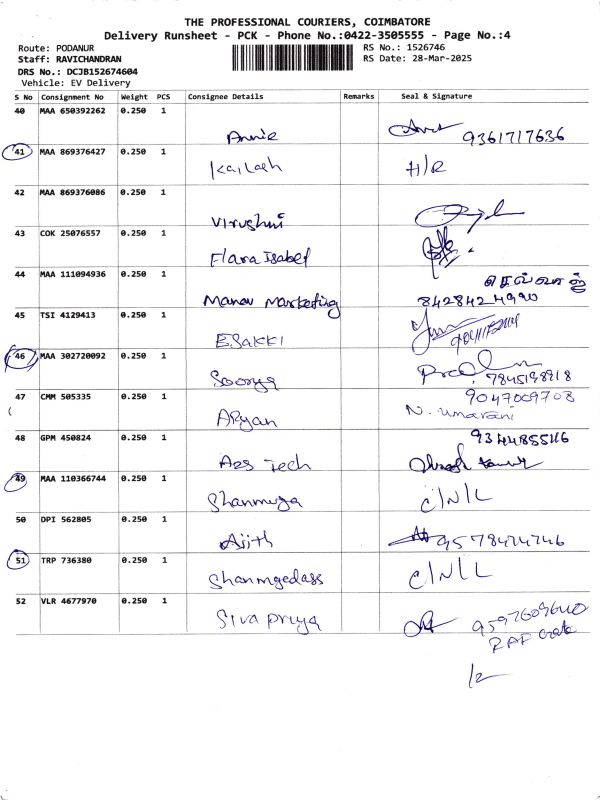 THE PROFESSIONAL COURIERS, COIMBATORE
Delivery Runsheet - PCK - Phone No.:0422-3505555 - Page No.:4
Route: PODANUR
RS No.: 1526746
Staff: RAVICHANDRAN
RS Date: 28-Mar-2025
DRS No.: DCJB152674604
Vehicle: EV Delivery
S No Consignment No Weight PCS Consignee Details Remarks Seal & Signature
40 MAA 650392262 0.250 1
Annie 9361717636
41 MAA 869376427 0.250 1
Kailash H/R
42 MAA 869376086 0.250 1
Virushni
43 COK 25076557 0.250 1
Flara Isabel
44 MAA 111094936 0.250 1
செல்வராஜ்
Manav Marketing 8428424990
45 TSI 4129413 0.250 1
E.SAKKI
46 MAA 302720092 0.250 1
Soorya 7845198918
47 CMM 505335 0.250 1 9047009708
ARyan N. Umarani
48 GPM 450824 0.250 1 9344855116
A2S Tech
49 MAA 110366744 0.250 1
Shanmuga C/N/L
50 DPI 562805 0.250 1
Ajith 9578474746
51 TRP 736380 0.250 1
Shanmgedass C/N/L
52 VLR 4677970 0.250 1
Siva priya 9597609640